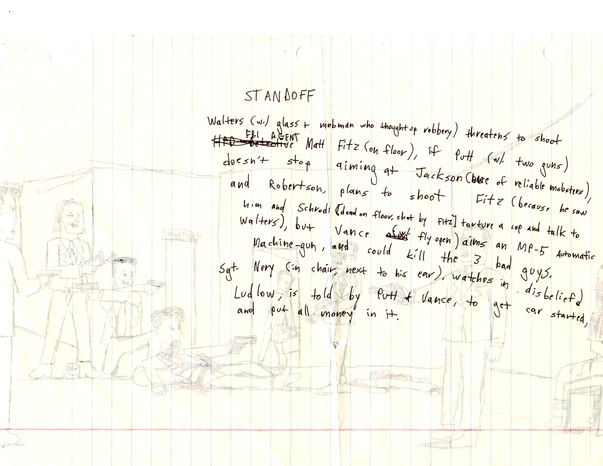 STANDOFF
Walters (w/ glass + mobman who thought up robbery) threatens to shoot
FBI AGENT
Matt Fitz (on floor), if Putt (w/ two guns)
doesn't stop aiming at Jackson ( of reliable mobsters),
and Robertson, plans to shoot Fitz (because he saw
him and Schrodi [dead on floor, shot by Fitz] torture a cop and talk to
Walters), but Vance ( fly open) aims an MP-5 Automatic
Machine-gun, and could kill the 3 bad guys.
Sgt. Nery (in chair, next to his ear), watches in disbelief
Ludlow, is told by Putt & Vance, to get car started,
and put all money in it.